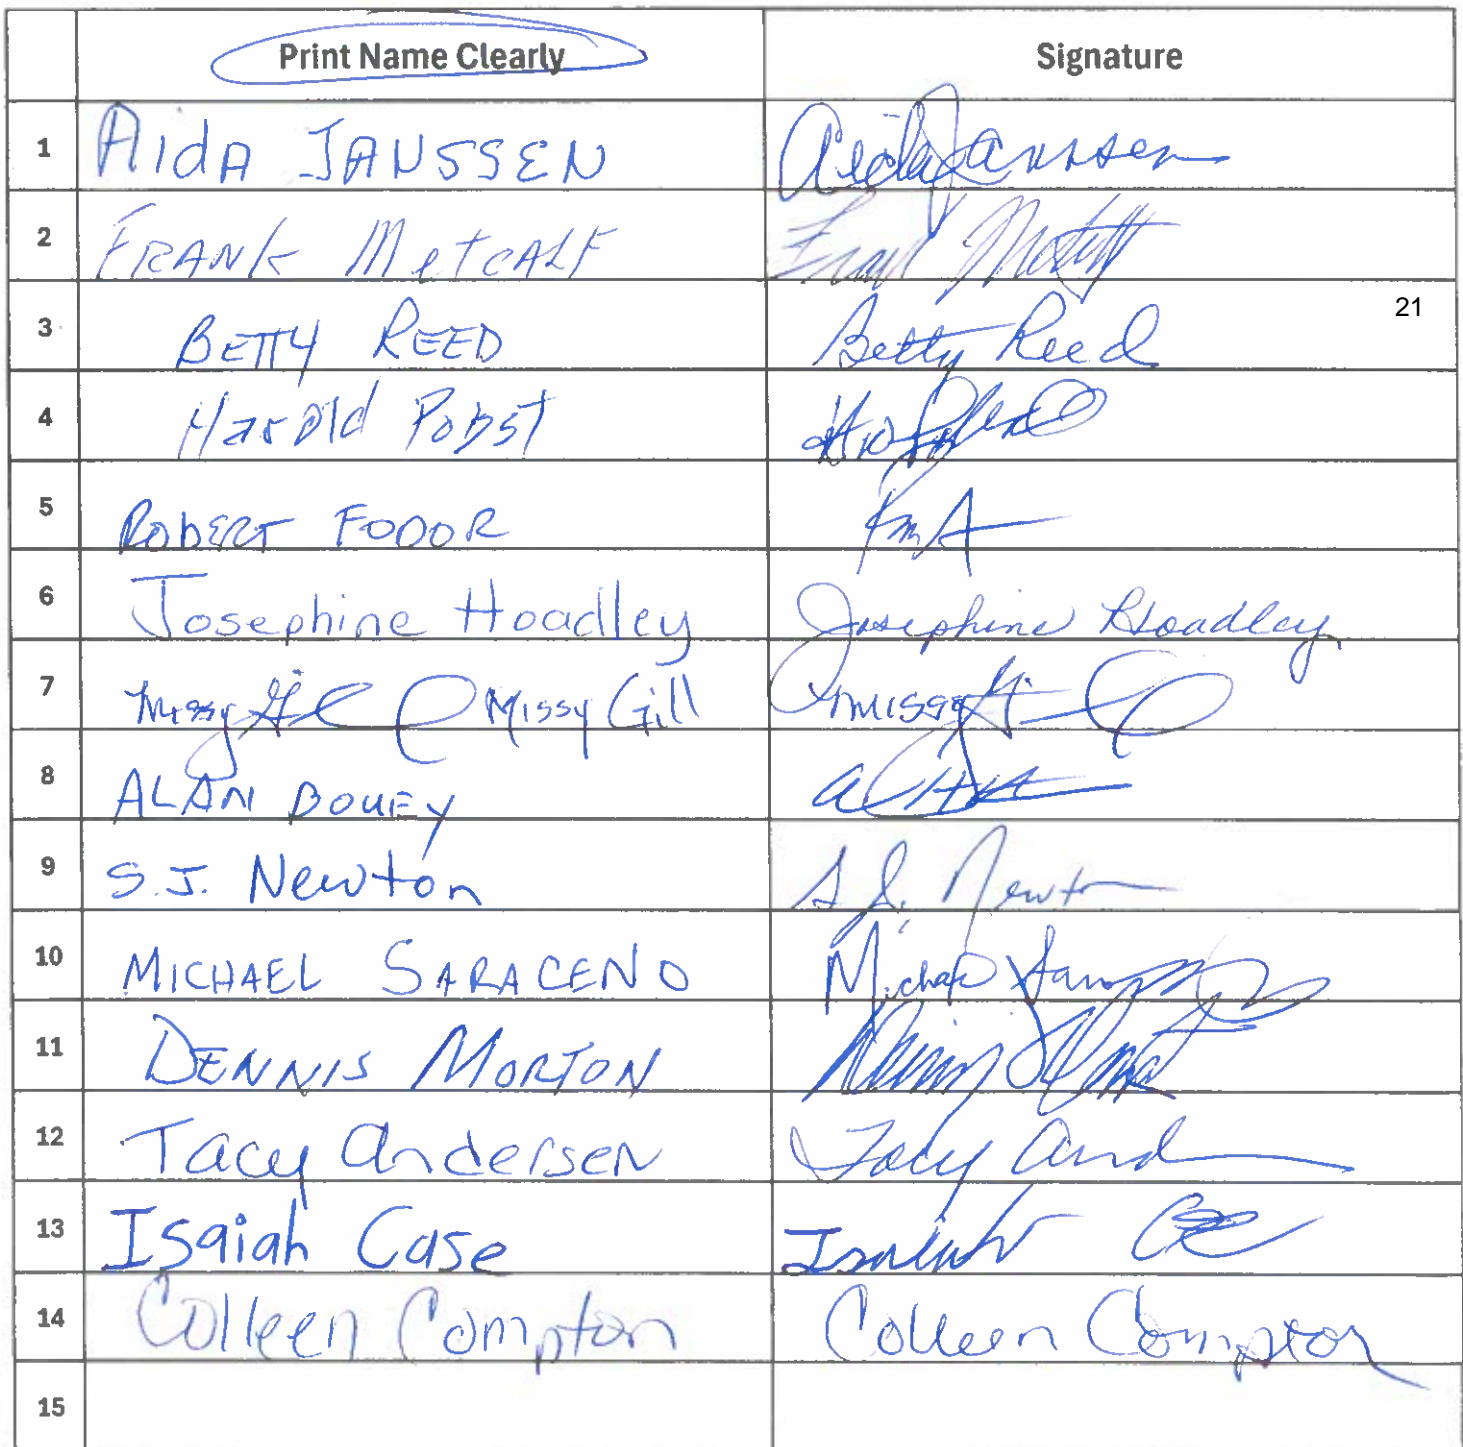 Print Name Clearly Signature
1 AidA JANSSEN Aida Janssen
2 FRANK MetcALF Frank
3 BETTY REED Betty Reed 21
4 Harold Pobst
5 RobERT FODOR
6 Josephine Hoadley Josephine Hoadley
7 Missy Gill Missy Gill Missy Gill
8 ALAN BOUEY
9 S.J. Newton S.J. Newton
10 MICHAEL SARACENO Michael
11 DENNIS MORTON
12 Tacy AnderseN Tacy And
13 Isaiah Case Isaiah
14 Colleen Compton Colleen Compton
15